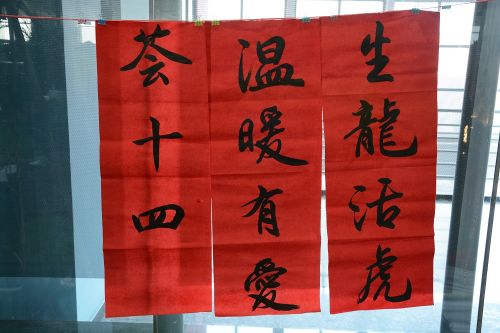 生龍活虎
溫暖有愛
荟十四